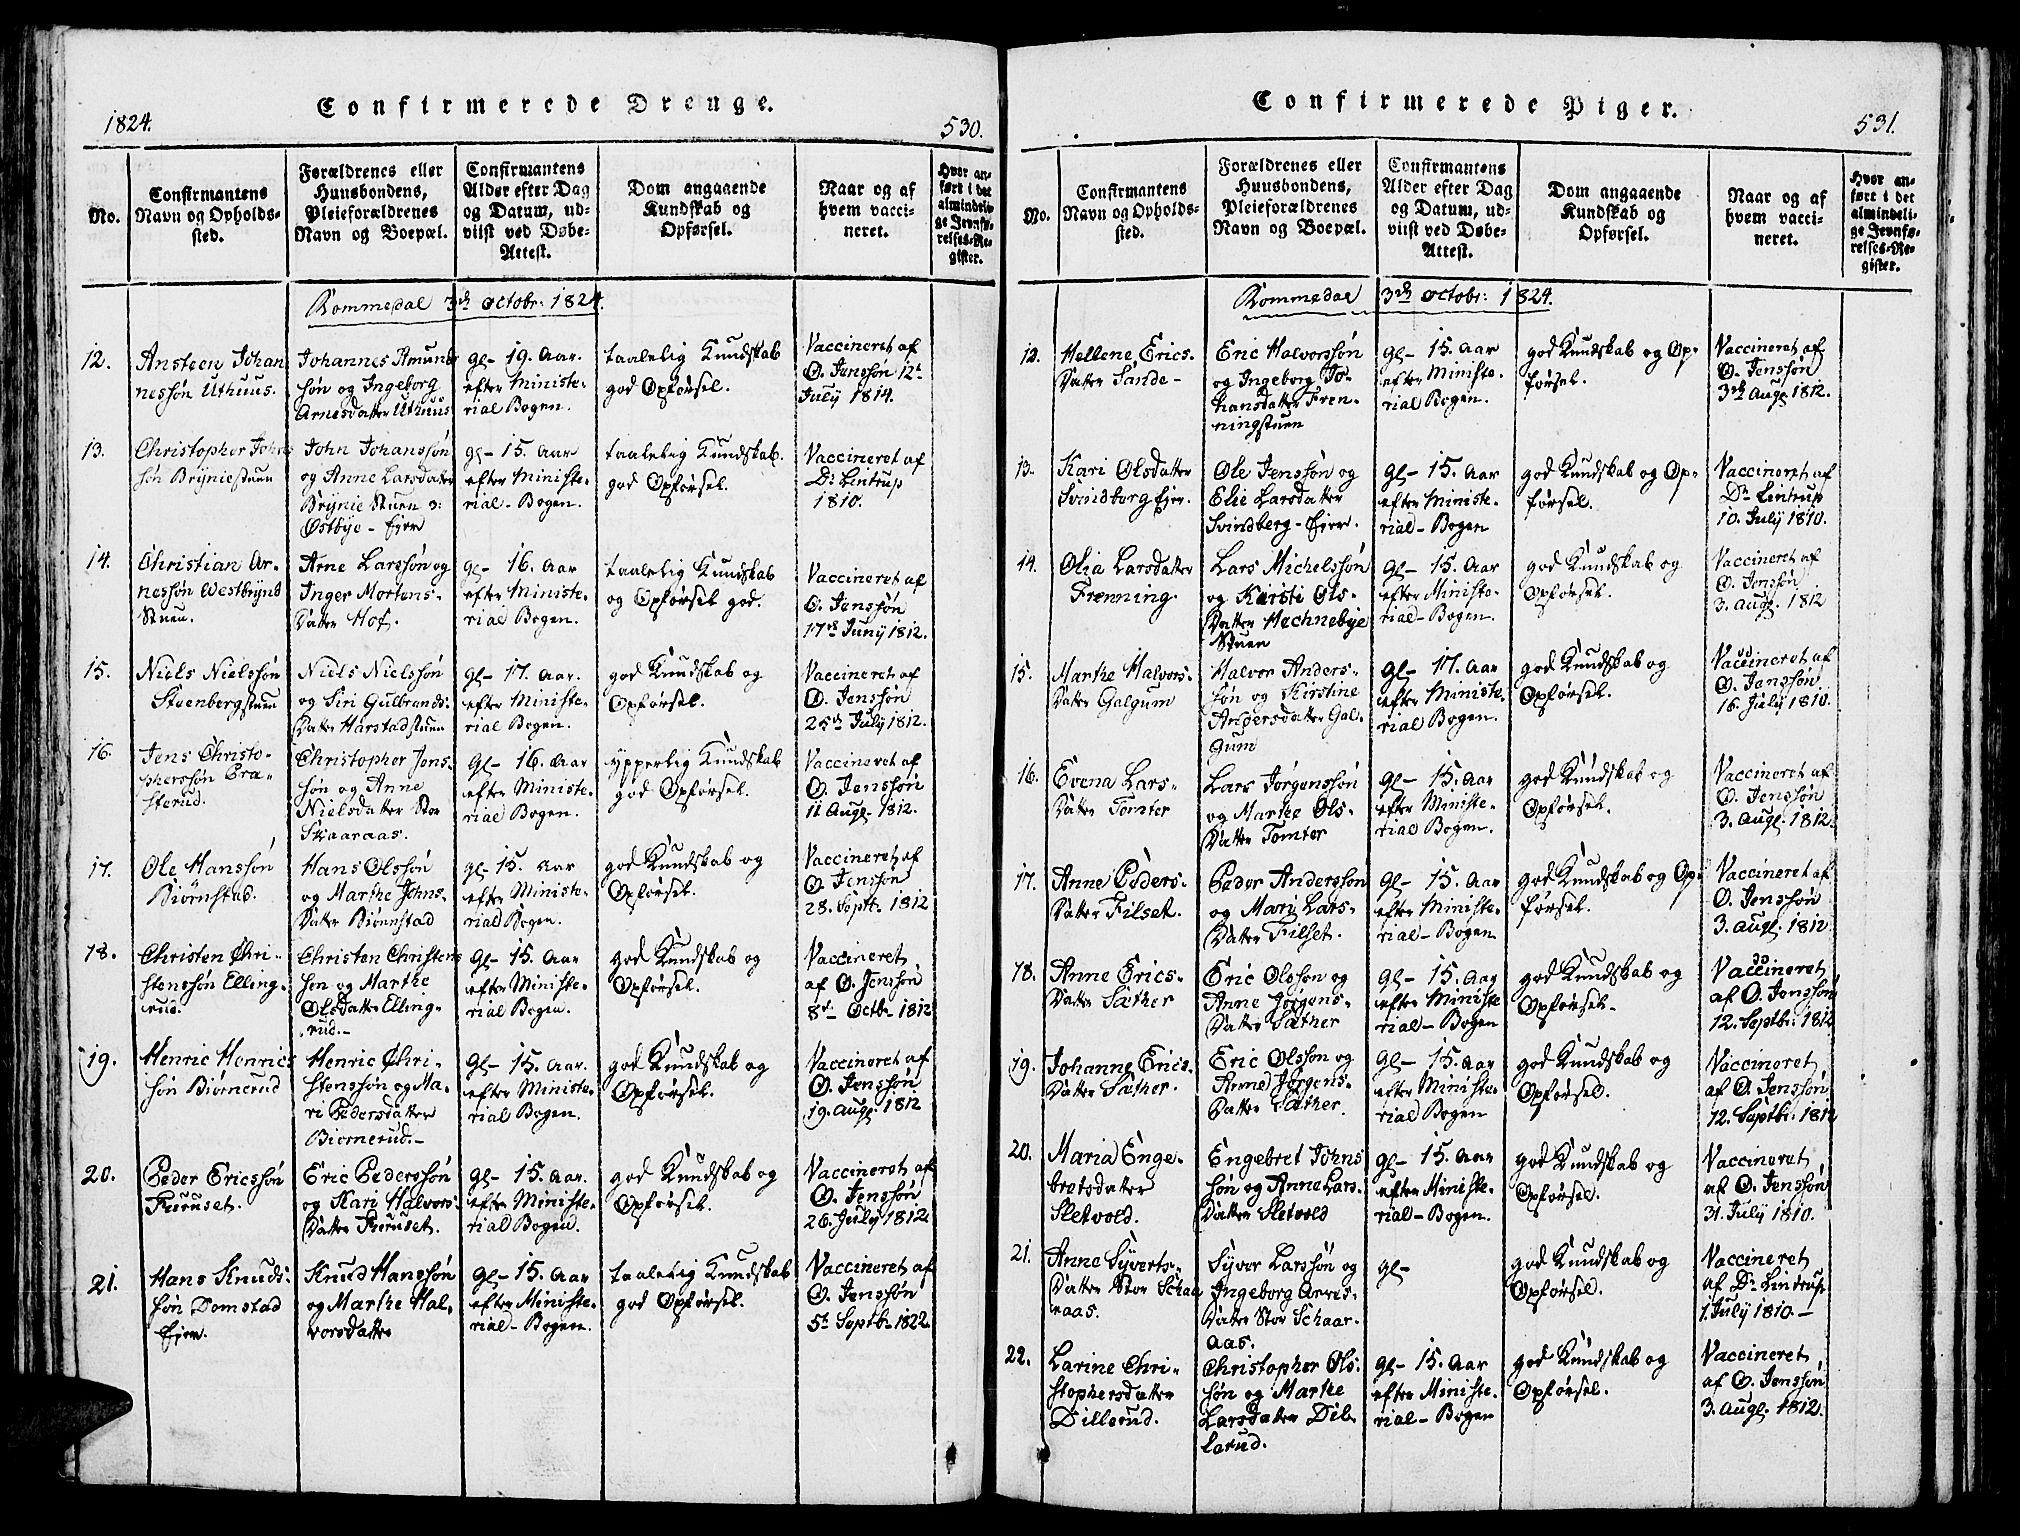 1824.
Confirmerede Drenge.
530.
No.
Confirmantens
Navn og Opholds-
sted.
Forældrenes eller
Huusbondens,
Pleieforældrenes
Navn og Boepæl.
Confirmantens
Alder efter Dag
og Datum, ud-
viist ved Døbe-
Attest.
Dom angaaende
Kundskab og
Opførsel.
Naar og af
hvem vacci-
neret.
Hvor an-
ført i det
almindeli-
ge Jevnfø-
relses-Re-
gister.
Rommedal 3de Octobr: 1824.
12.
Ansteen Johan
nessøn Uthuus.
Johannes Amunds
søn og Ingeborg
Arnesdatter Uthuus
gl- 19. Aar.
efter Ministe-
rial Bogen.
taalelig Kundskab
god Opførsel.
Vaccineret af
O. Jenssøn 12t
July 1814.
13.
Christopher Johns
søn Brÿniestuen
John Johanssøn
og Anne Larsdatter
Brÿnie Stuen 3:
Østbÿe - Ejer
gl- 15. Aar
efter Ministe-
rial- Bogen.
taalelig Kundskab.
god Opførsel.
Vaccineret af
Dr Lintrup
1810.
14.
Christian Ar-
nessøn Westbÿnd
Stuen.
Arne Larssøn og
Inger Mortens-
Datter Hof.
gl- 16. Aar
efter Ministe-
rial Bogen.
taalelig Kundskab
og Opførsel god.
Vaccineret af
O. Jenssøn
17de Juny 1812.
15.
Niels Nielssøn
Steenbergstuen
Niels Nielssøn
og Siri Gulbrands:
Datter Harstadstuen
gl- 17. Aar.
efter Ministe-
rial Bogen.
god Kundskab og
Opførsel.
Vaccineret af
O. Jenssøn
25de July 1812.
16.
Jens Christo-
pherssøn Bra-
sterud.
Christopher Jens-
søn og Anne
Nielsdatter Stor
Skaaraas.
gl- 16. Aar
efter Ministe-
rial Bogen.
ÿpperlig Kundskab
god Opførsel.
Vaccineret af
O. Jenssøn
11 Augl. 1812.
17.
Ole Hanssøn
Biørnstad.
Hans Olssøn
og Marthe Johns-
Datter Biørnstad
gl- 15. Aar
efter Ministe-
rial Bogen.
god Kundskab og
Opførsel.
Vaccineret af
O. Jenssøn
28. Septb. 1812
18.
Christen Chri-
stenssøn Elling-
rud.
Christen Christens
søn og Marthe
Olsdatter Elling-
rud.-
gl- 15. Aar
efter Ministe-
rial Bogen.
god Kundskab og
Opførsel.
Vaccineret
af O. Jenssøn
8de Octbr 1812
19.
Henric Henrics
søn Biørnerud
Henric Chri-
stenssøn og Ma-
ri Pedersdatter
Biørnerud.-
gl- 15. Aar.
efter Ministe-
rial Bogen.
god Kundskab og
Opførsel.
Vaccineret af
O. Jenssøn
19. Augl: 1812
20.
Peder Ericssøn
Furuset.
Eric Pederssøn
og Kari Halvors:
Datter Furuset.
gl- 15. Aar.
efter Ministe-
rial Bogen.
god Kundskab og
Opførsel.
Vaccineret af
O. Jenssøn
26. July 1812
21.
Hans Knuds-
søn Domstad
Ejer.
Knud Hanssøn
og Marthe Hal-
vorsdatter
gl- 15. Aar
efter Ministe-
rial- Bogen.
taalelig Kundskab
god Opførsel.
Vaccineret af
O. Jenssøn
5t Septb. 1822
Confirmerede Piger.
531.
No.
Confirmantens
Navn og Opholds-
sted.
Forældrenes eller
Huusbondens,
Pleieforældrenes
Navn og Boepæl.
Confirmantens
Alder efter Dag
og Datum, ud-
viist ved Døbe-
Attest.
Dom angaaende
Kundskab og
Opførsel.
Naar og af
hvem vacci-
neret.
Hvor an-
ført i det
almindeli-
ge Jevnfø-
relses-Re-
gister.
Rommedal 3de Octobr: 1824.
12.
Hellene Erics-
Datter Sande-
Eric Halvorssøn
og Ingeborg Jo-
hansdatter Fren-
ningstuen
gl- 15. Aar
efter Ministe-
rial Bogen.
god Kundskab og Op-
førsel.
Vaccineret af
O. Jenssøn
3de Augl 1812.
13.
Kari Olsdatter
Svindborg Ejer.
Ole Jenssøn og
Elie Larsdatter
Svindberg - Ejer.
gl- 15. Aar
efter Ministe-
rial- Bogen
god Kundskab og Op-
førsel.
Vaccineret af
Dr Lintrup
10. July 1810.
14.
Olia Larsdatter
Frenning.
Lars Michelssøn
og Kirsti Ols-
Datter Hechnebÿe
Stuen
gl- 15. Aar
efter Ministe-
rial- Bogen.
god Kundskab og
Opførsel.
Vaccineret af
O. Jenssøn
3. Augl. 1812
15.
Marthe Halvors-
Datter Galgum
Halvor Anders-
søn og Kirstine
Andersdatter Gal-
gum
gl- 17. Aar
efter Ministe-
rial Bogen.
god Kundskab og
Opførsel.
Vaccineret af
O. Jenssøn
16. July 1810.
16.
Evena Lars-
Datter Tomter
Lars Jörgenssøn
og Marthe Ols-
Datter Tomter
gl- 15. Aar
efter Ministe-
rial Bogen.
god Kundskab og
Opførsel.
Vaccineret af
O. Jenssøn
3. Augl. 1812.
17.
Anne Peders-
Datter Filset.
Peder Anderssøn
og Mari Lars-
Datter Filset.
gl- 15. Aar
efter Ministe-
rial- Bogen
god Kundskab og Op-
førsel.
Vaccineret af
O. Jenssøn
3. Augl. 1812
18.
Anne Erics-
Datter Sæther
Eric Olssøn og
Anne Jörgens-
Datter Sæther
gl- 15. Aar
efter Ministe
rial- Bogen
god Kundskab og
Opførsel-
Vaccineret
af O. Jenssøn
12. Septbr: 1812
19.
Johanne Erics-
Datter Sæther.
Eric Olssøn og
Anne Jörgens-
Datter Sæther.
gl- 15. Aar
efter Ministe-
rial Bogen
god Kundskab og
Opførsel.
Vaccineret
af O. Jenssøn
12. Septbr: 1812
20.
Maria Enge-
bretsdatter
Sletvold.
Engebret Johns
søn og Anne Lars-
Datter Sletvold
gl- 15. Aar
efter Ministe-
rial- Bogen.
god Kundskab og
Opførsel.
Vaccineret
af O. Jenssøn
31. July 1810.
21.
Anne Sÿverts-
Datter Stor Schaa
raas.
Sÿver Larssøn og
Ingeborg Arves-
Datter Stor Schaar-
aas.
gl-
god Kundskab og
Opførsel.
Vaccineret
af Dr Lintrup
1. July 1810-
22.
Larine Chri-
stophersdatter
Dillerud.
Christopher Ols-
søn og Marthe
Larsdatter Dil-
lerud.
gl- 15. Aar
efter Ministe-
rial- Bogen
god Kundskab og
Opførsel.
Vaccineret
af O. Jenssøn
3. Augl. 1812.